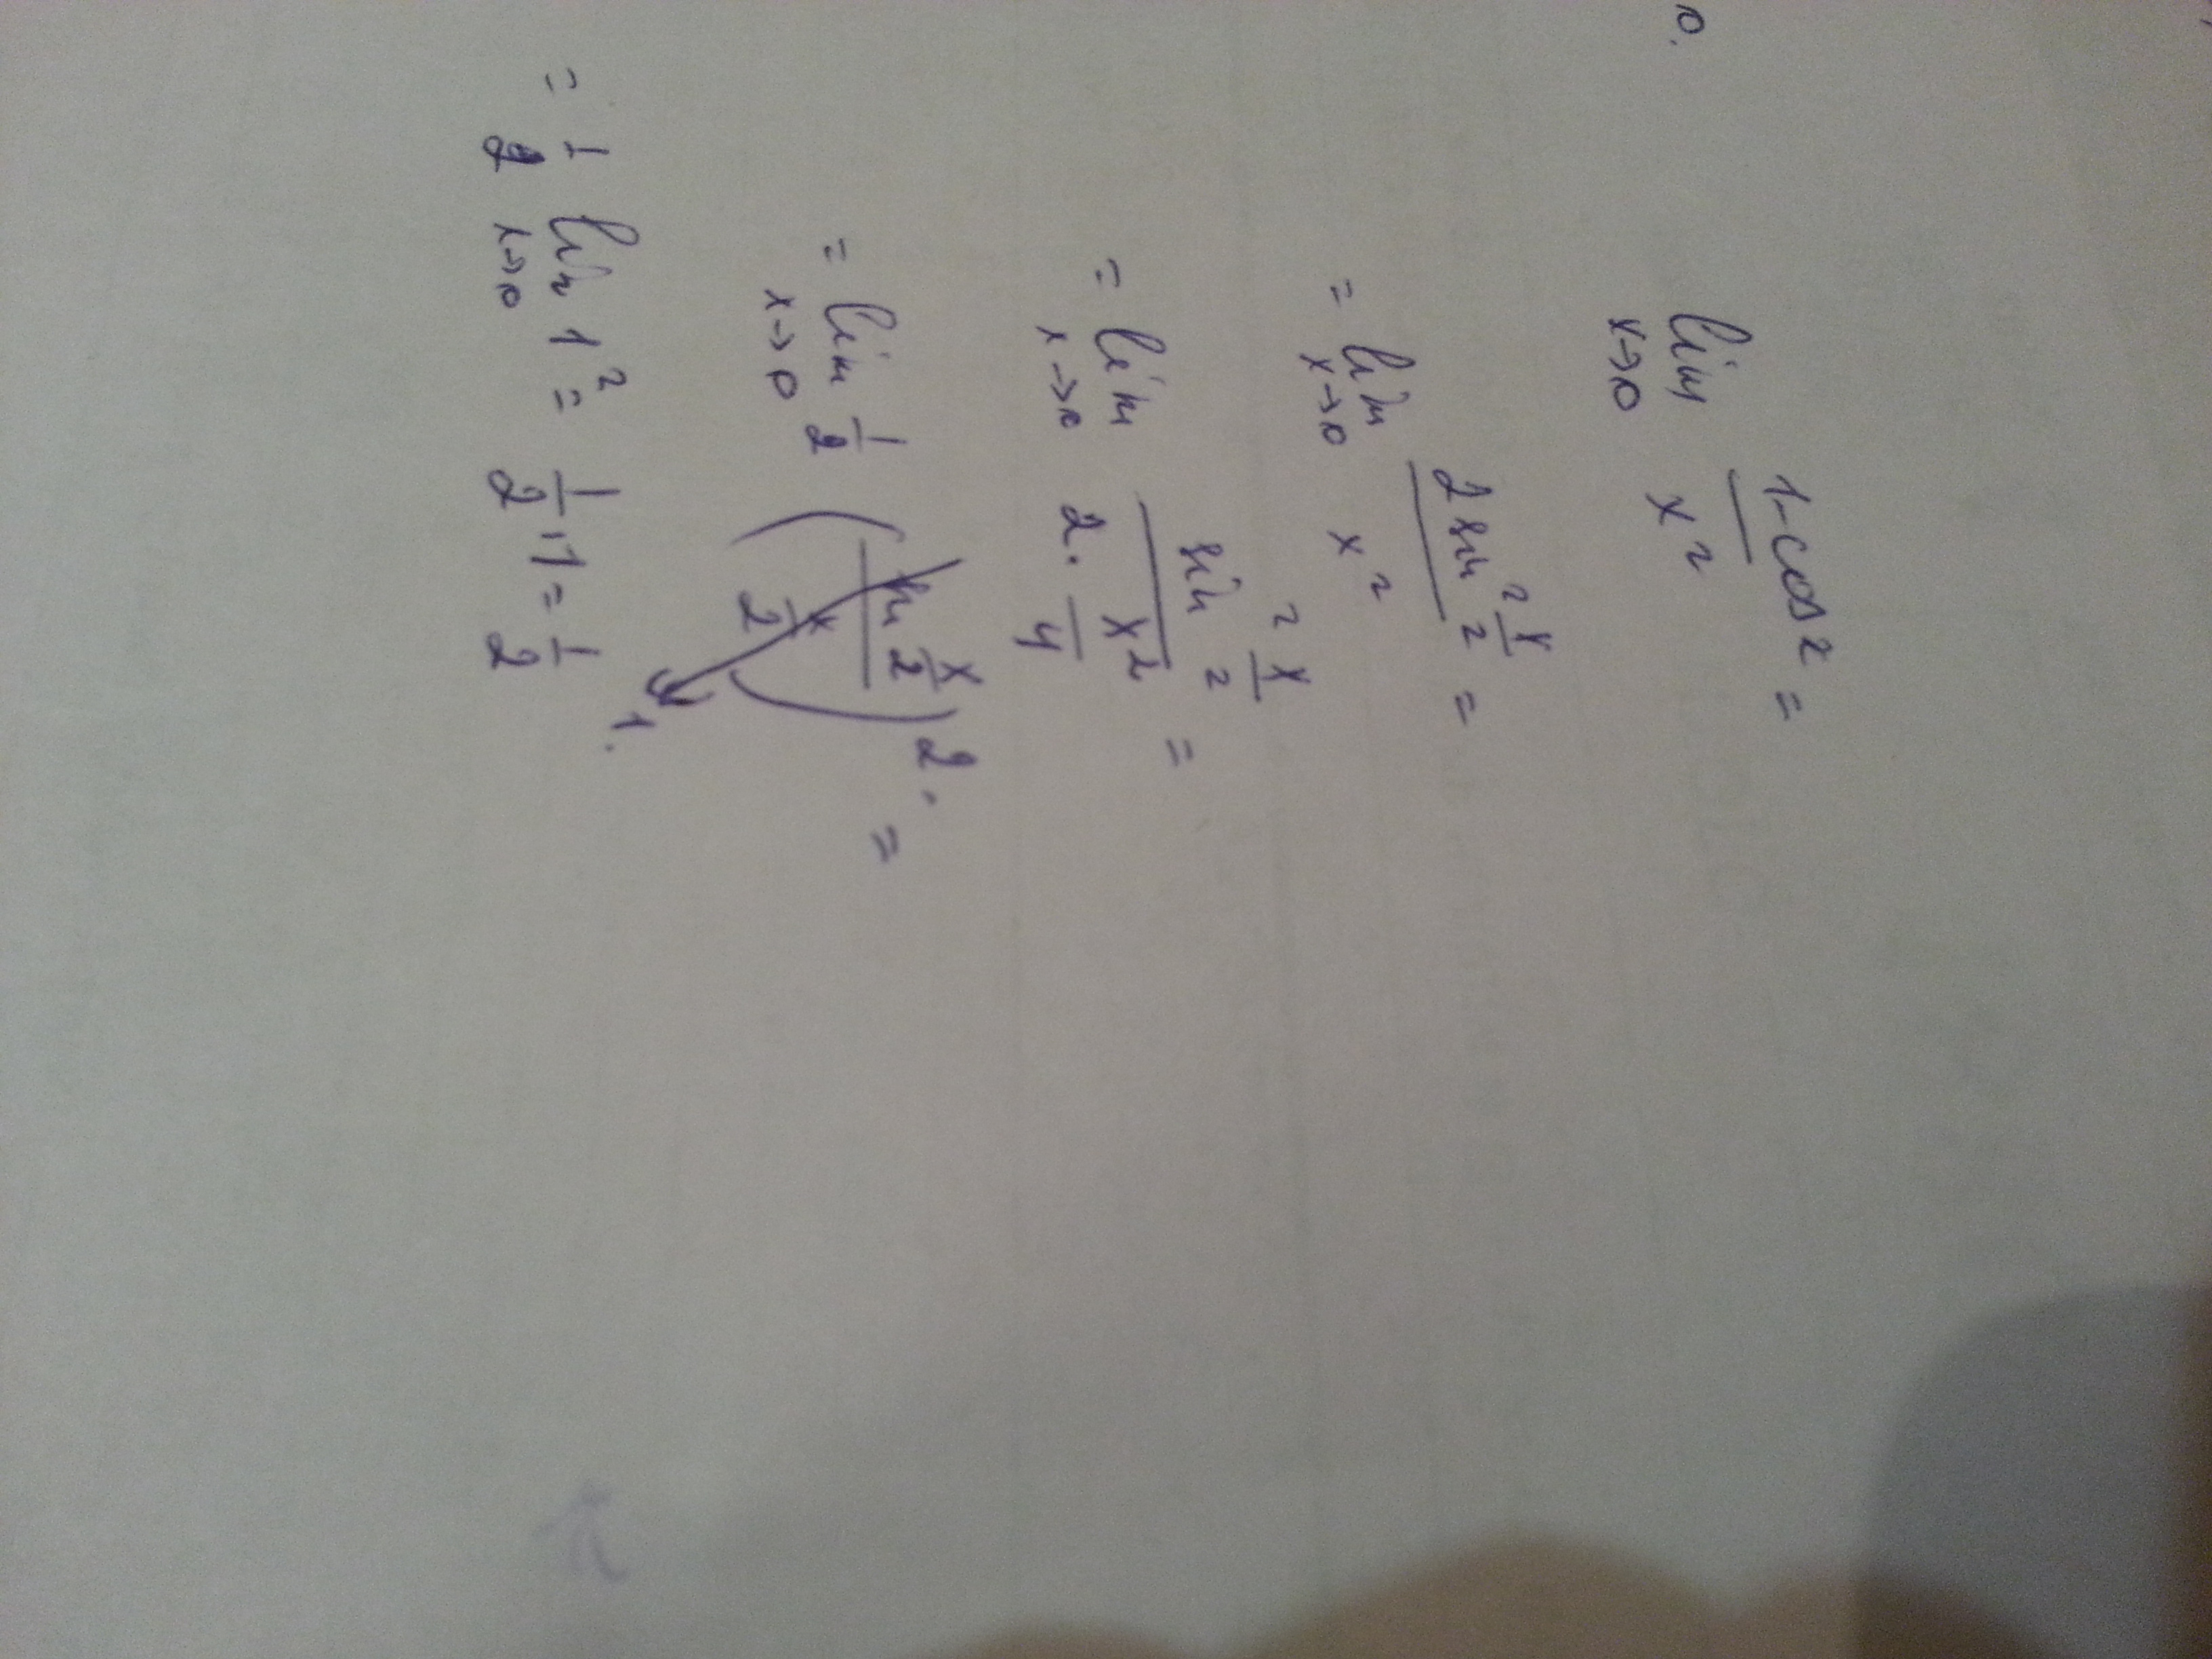 0.
lim x→0 (1-cos x)/(x²) =
= lim x→0 (2 sin² x/2)/(x²) =
= lim x→0 (sin² x/2)/(2 · x²/4) =
= lim x→0 1/2 ((sin x/2)/(x/2))² · =
1.
= 1/2 lim x→0 1² = 1/2 · 1 = 1/2